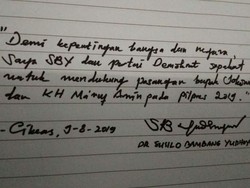 "Demi kepentingan bangsa dan negara,
Saya SBY dan partai Demokrat sepakat
untuk mendukung pasangan bapak Jokowi
dan KH Ma'ruf Amin pada pilpres 2019."
- Cikeas, 9-8-2019
SBYudhoyono
DR SUSILO BAMBANG YUDHOYONO